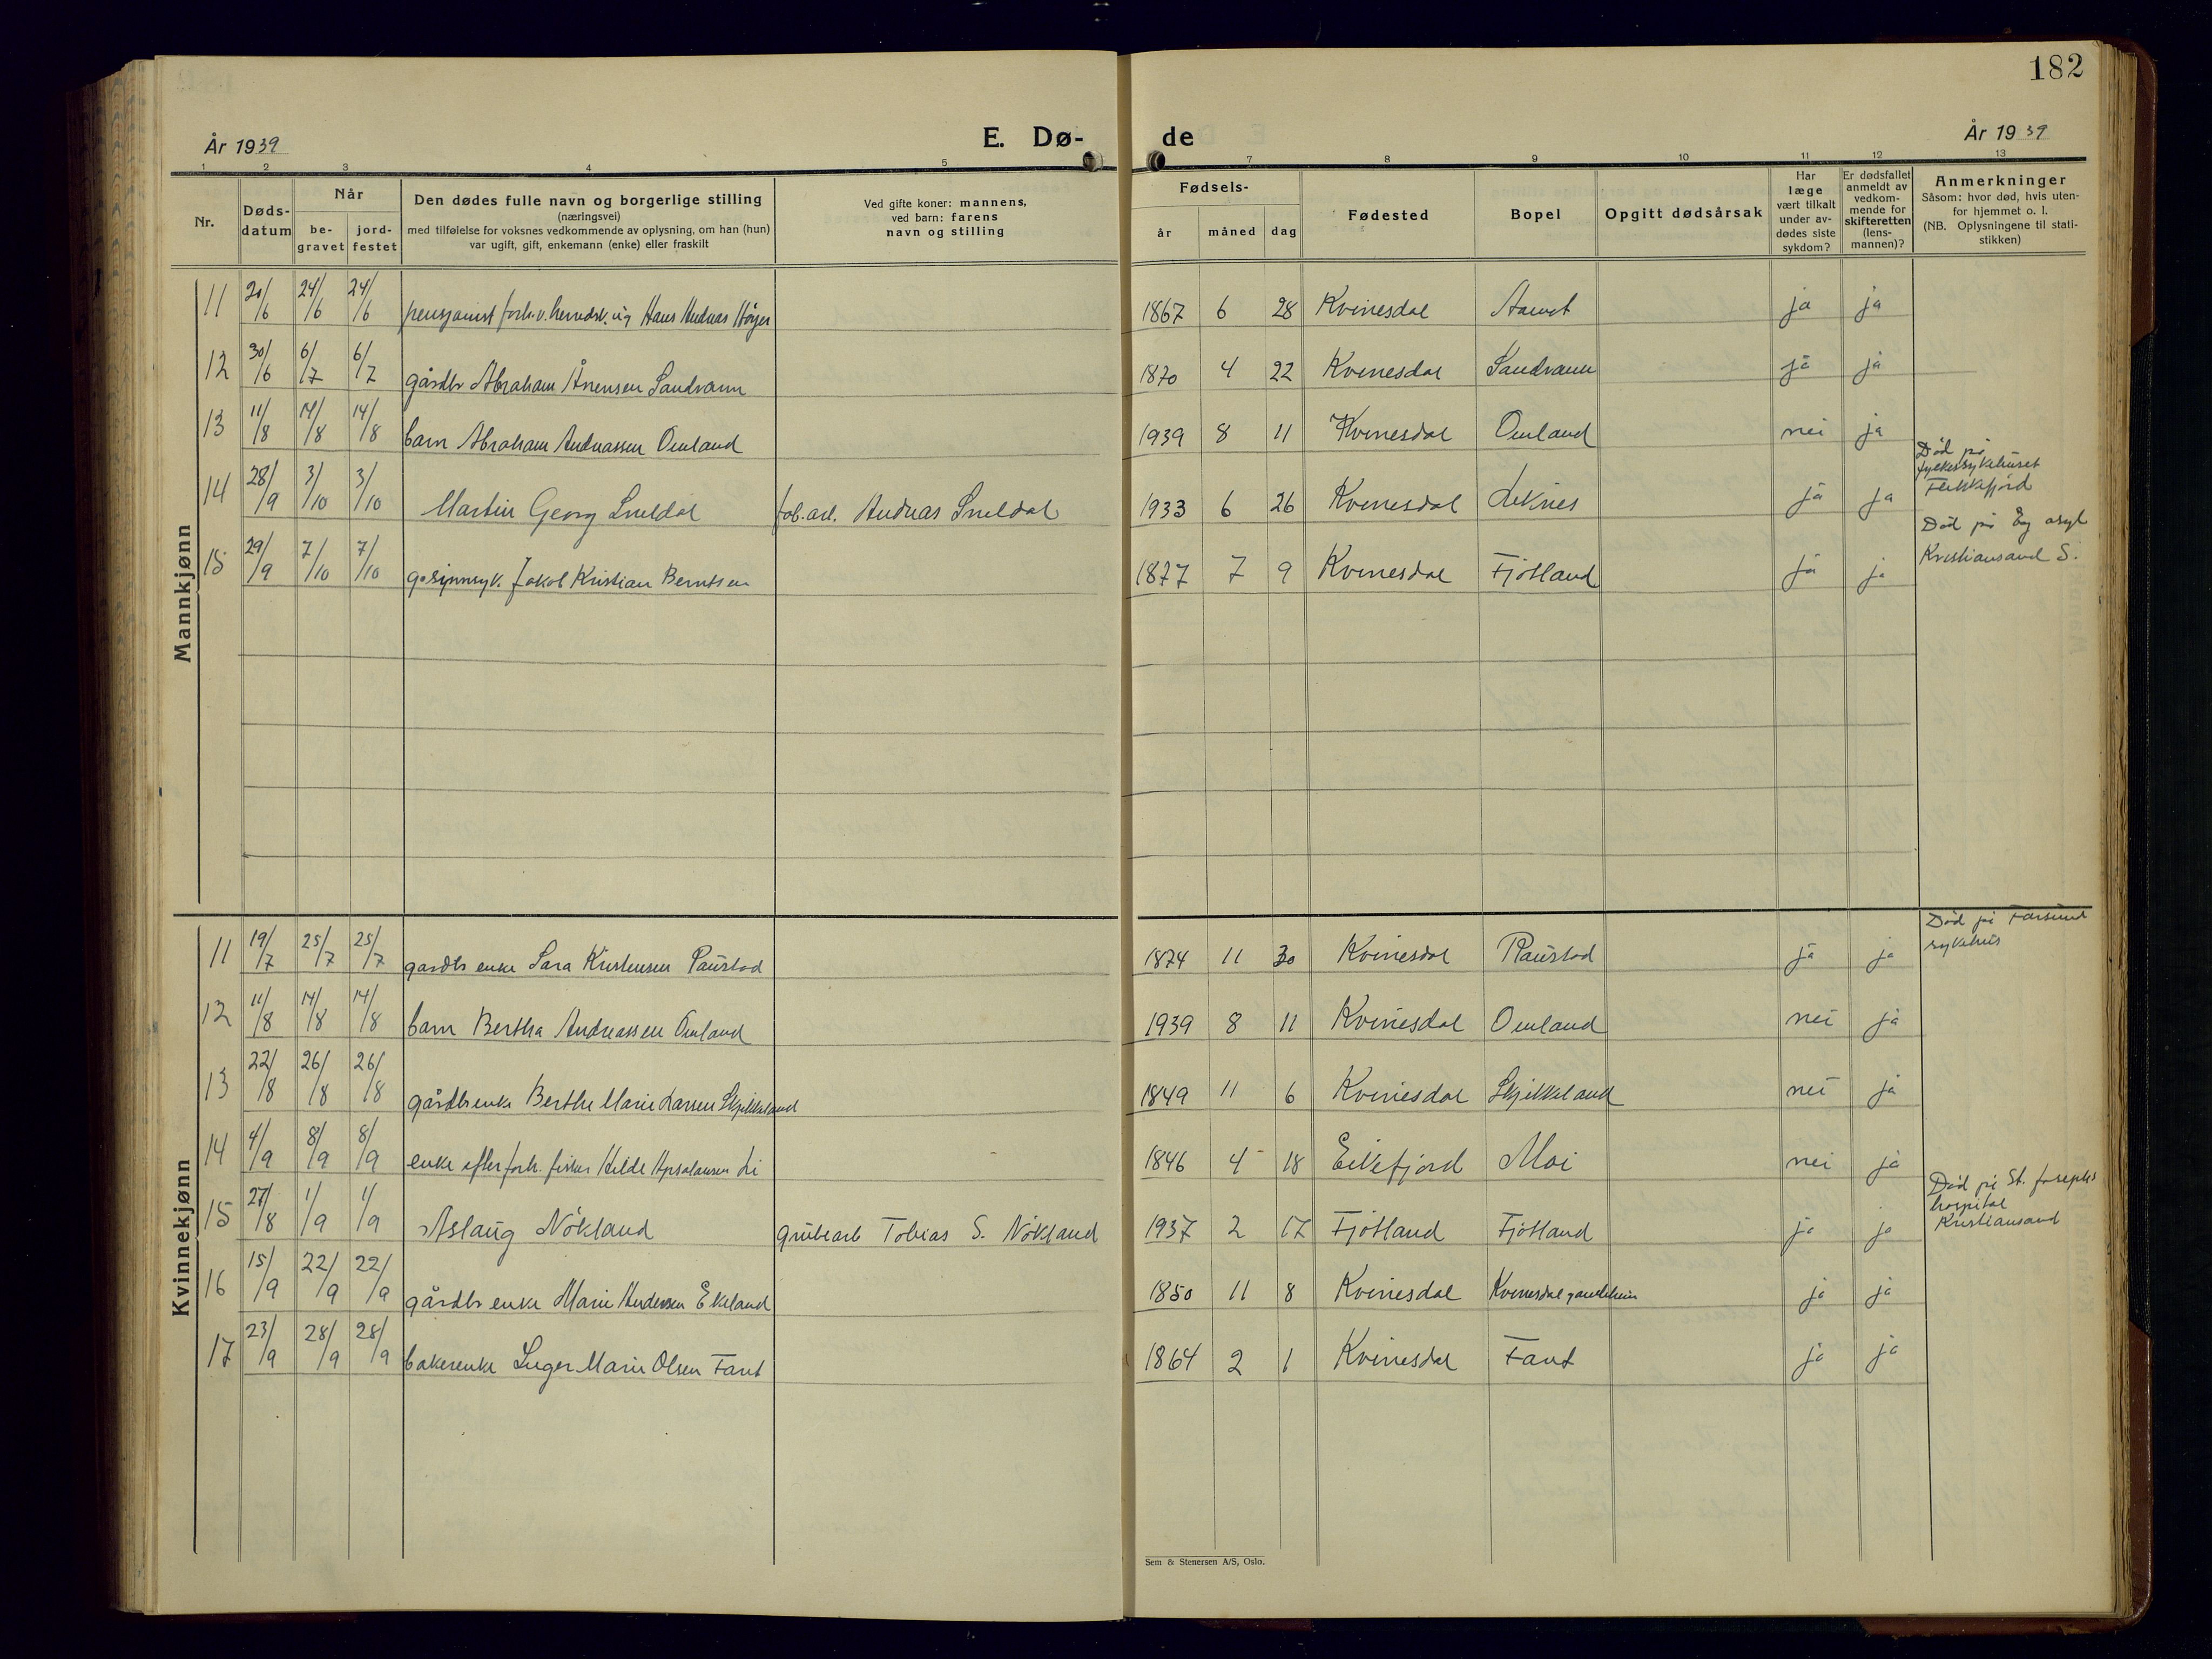 182
År 1939 E. Dø- de År 1939
1 2 3 4 5 7 8 9 10 11 12 13
Nr.
Døds-
datum
Når
be-
gravet
jord-
festet
Den dødes fulle navn og borgerlige stilling
(næringsvei)
med tilføielse for voksnes vedkommende av oplysning, om han (hun)
var ugift, gift, enkemann (enke) eller fraskilt
Ved gifte koner: mannens,
ved barn: farens
navn og stilling
Fødsels-
år måned dag
Fødested
Bopel
Opgitt dødsårsak
Har
læge
vært tilkalt
under av-
dødes siste
sykdom?
Er dødsfallet
anmeldt av
vedkom-
mende for
skifteretten
(lens-
mannen)?
Anmerkninger
Såsom: hvor død, hvis uten-
for hjemmet o. l.
(NB. Oplysningene til stati-
stikken)
Mannkjønn
11 20/6 24/6 24/6 pensjonist Hans Andreas 1867 6 28 Kvinesdal ja ja
12 30/6 6/7 6/7 gårdbr Abraham Ånensen Sandvann 1870 4 22 Kvinesdal Sandvann ja ja
13 11/8 14/8 14/8 barn Abraham Andreassen Omland 1939 8 11 Kvinesdal Omland nei ja
14 28/9 3/10 3/10 Martin Georg Sneldal fab.arb. Andreas Sneldal 1933 6 26 Kvinesdal Leknes ja ja Død på
fylkessykehuset
Flekkefjord
15 29/9 7/10 7/10 sinnsyk. Jakob Kristian Berntsen 1877 7 9 Kvinesdal Fjotland ja ja Død på Eg asyl
Kristiansand S.
Kvinnekjønn
11 19/7 25/7 25/7 gardbr enke Sara Kristensen Raustad 1874 11 30 Kvinesdal Raustad ja ja Død på Farsund
sykehus
12 11/8 14/8 14/8 barn Bertha Andreassen Omland 1939 8 11 Kvinesdal Omland nei ja
13 22/8 26/8 26/8 gårdbrenke Berthe Marie Larsen Skjekkeland 1849 11 6 Kvinesdal Skjekkeland nei ja
14 4/9 8/9 8/9 enke efter forh. fisker Li 1846 4 18 Eikefjord Moi nei ja
15 27/8 1/9 1/9 Aslaug Nökland grubearb Tobias S. Nökland 1937 2 17 Fjotland Fjotland ja ja Død på St. Josephs
hospital
Kristiansand
16 15/9 22/9 22/9 gårdbr enke Marie Andersen Ekeland 1850 11 8 Kvinesdal Kvinesdal gamlehiem ja ja
17 23/9 28/9 28/9 bakerenke Inger Marie Olsen Faret 1864 2 1 Kvinesdal Faret ja ja
Sem & Stenersen A/S, Oslo.